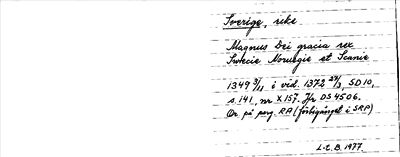 Sverige, rike
Magnus Dei gracia rex
Swecie Norwegie et Scanie
1349 3/11 i vid. 1372 29/3, SD 10,
s. 141, nr X 157. Jfr DS 4506.
Or. på perg. RA (förbigånget i SRP)
L-E. B. 1977.